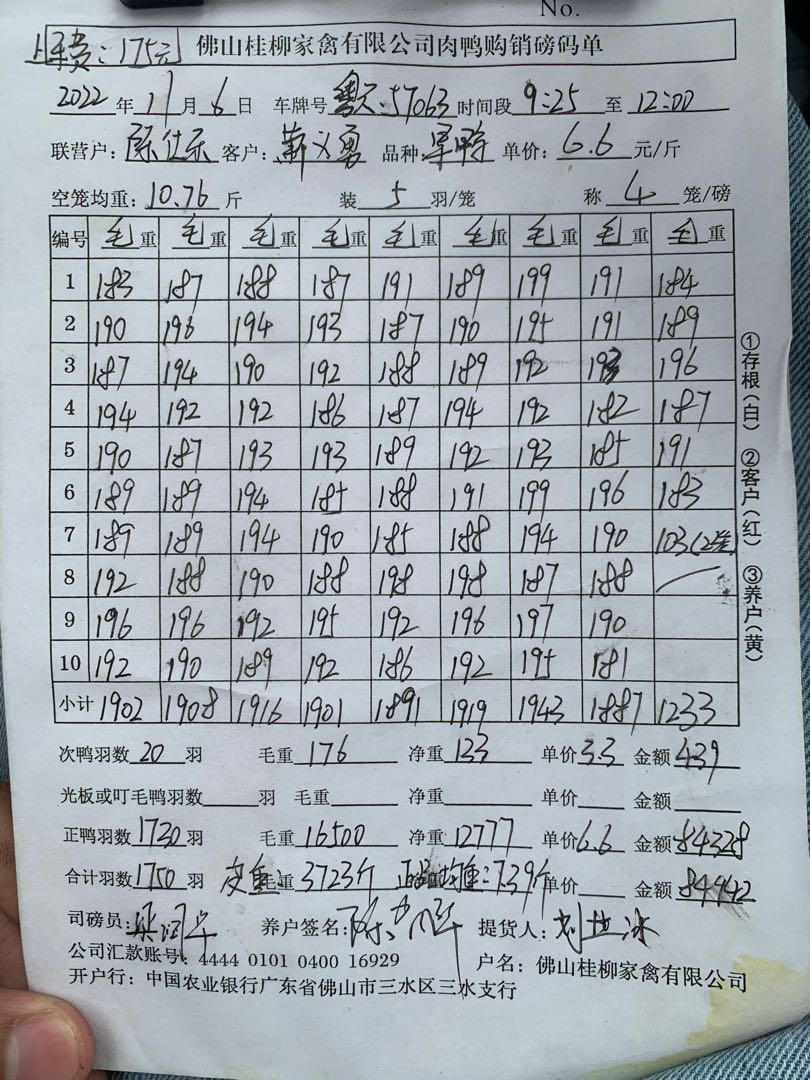 No.
车费：175元
佛山桂柳家禽有限公司肉鸭购销磅码单
2022年11月6日 车牌号 粤天·57063 时间段 9:25 至 12:00
联营户：陈仕乐 客户：萧义勇 品种： 单价：6.6元/斤
空笼均重：10.76斤 装5羽/笼 称4笼/磅
编号 毛重 毛重 毛重 毛重 毛重 毛重 毛重 毛重 毛重
1 183 187 188 187 191 189 199 191 184
2 190 196 194 193 187 190 195 191 189
3 187 194 190 192 188 189 192 193 196
4 194 192 192 186 187 194 192 182 187
5 190 187 193 193 189 192 193 185 191
6 189 189 194 185 188 191 199 196 183
7 189 189 194 190 185 188 194 190 103(2笼)
8 192 188 190 188 198 198 187 188
9 196 196 192 195 192 196 197 190
10 192 190 189 192 186 192 195 181
小计 1902 1908 1916 1901 1891 1919 1943 1887 1233
①存根（白） ②客户（红） ③养户（黄）
次鸭羽数20羽 毛重176 净重133 单价3.3 金额439
光板或叮毛鸭羽数 羽 毛重 净重 单价 金额
正鸭羽数1730羽 毛重16500 净重12777 单价6.6 金额84328
合计羽数1750羽 皮重：3723斤 均重：7.39斤 单价 金额84942
司磅员： 养户签名： 提货人：
公司汇款账号：4444 0101 0400 16929 户名：佛山桂柳家禽有限公司
开户行：中国农业银行广东省佛山市三水区三水支行